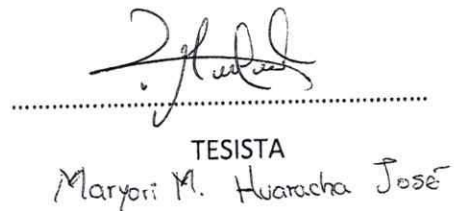 TESISTA
Maryori M. Huaracha José